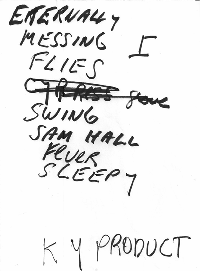 ETERNALLY
MESSING I
FLIES
CYPRESS grove
SWING
SAM HALL
FEVER
SLEEPY
KY PRODUCT